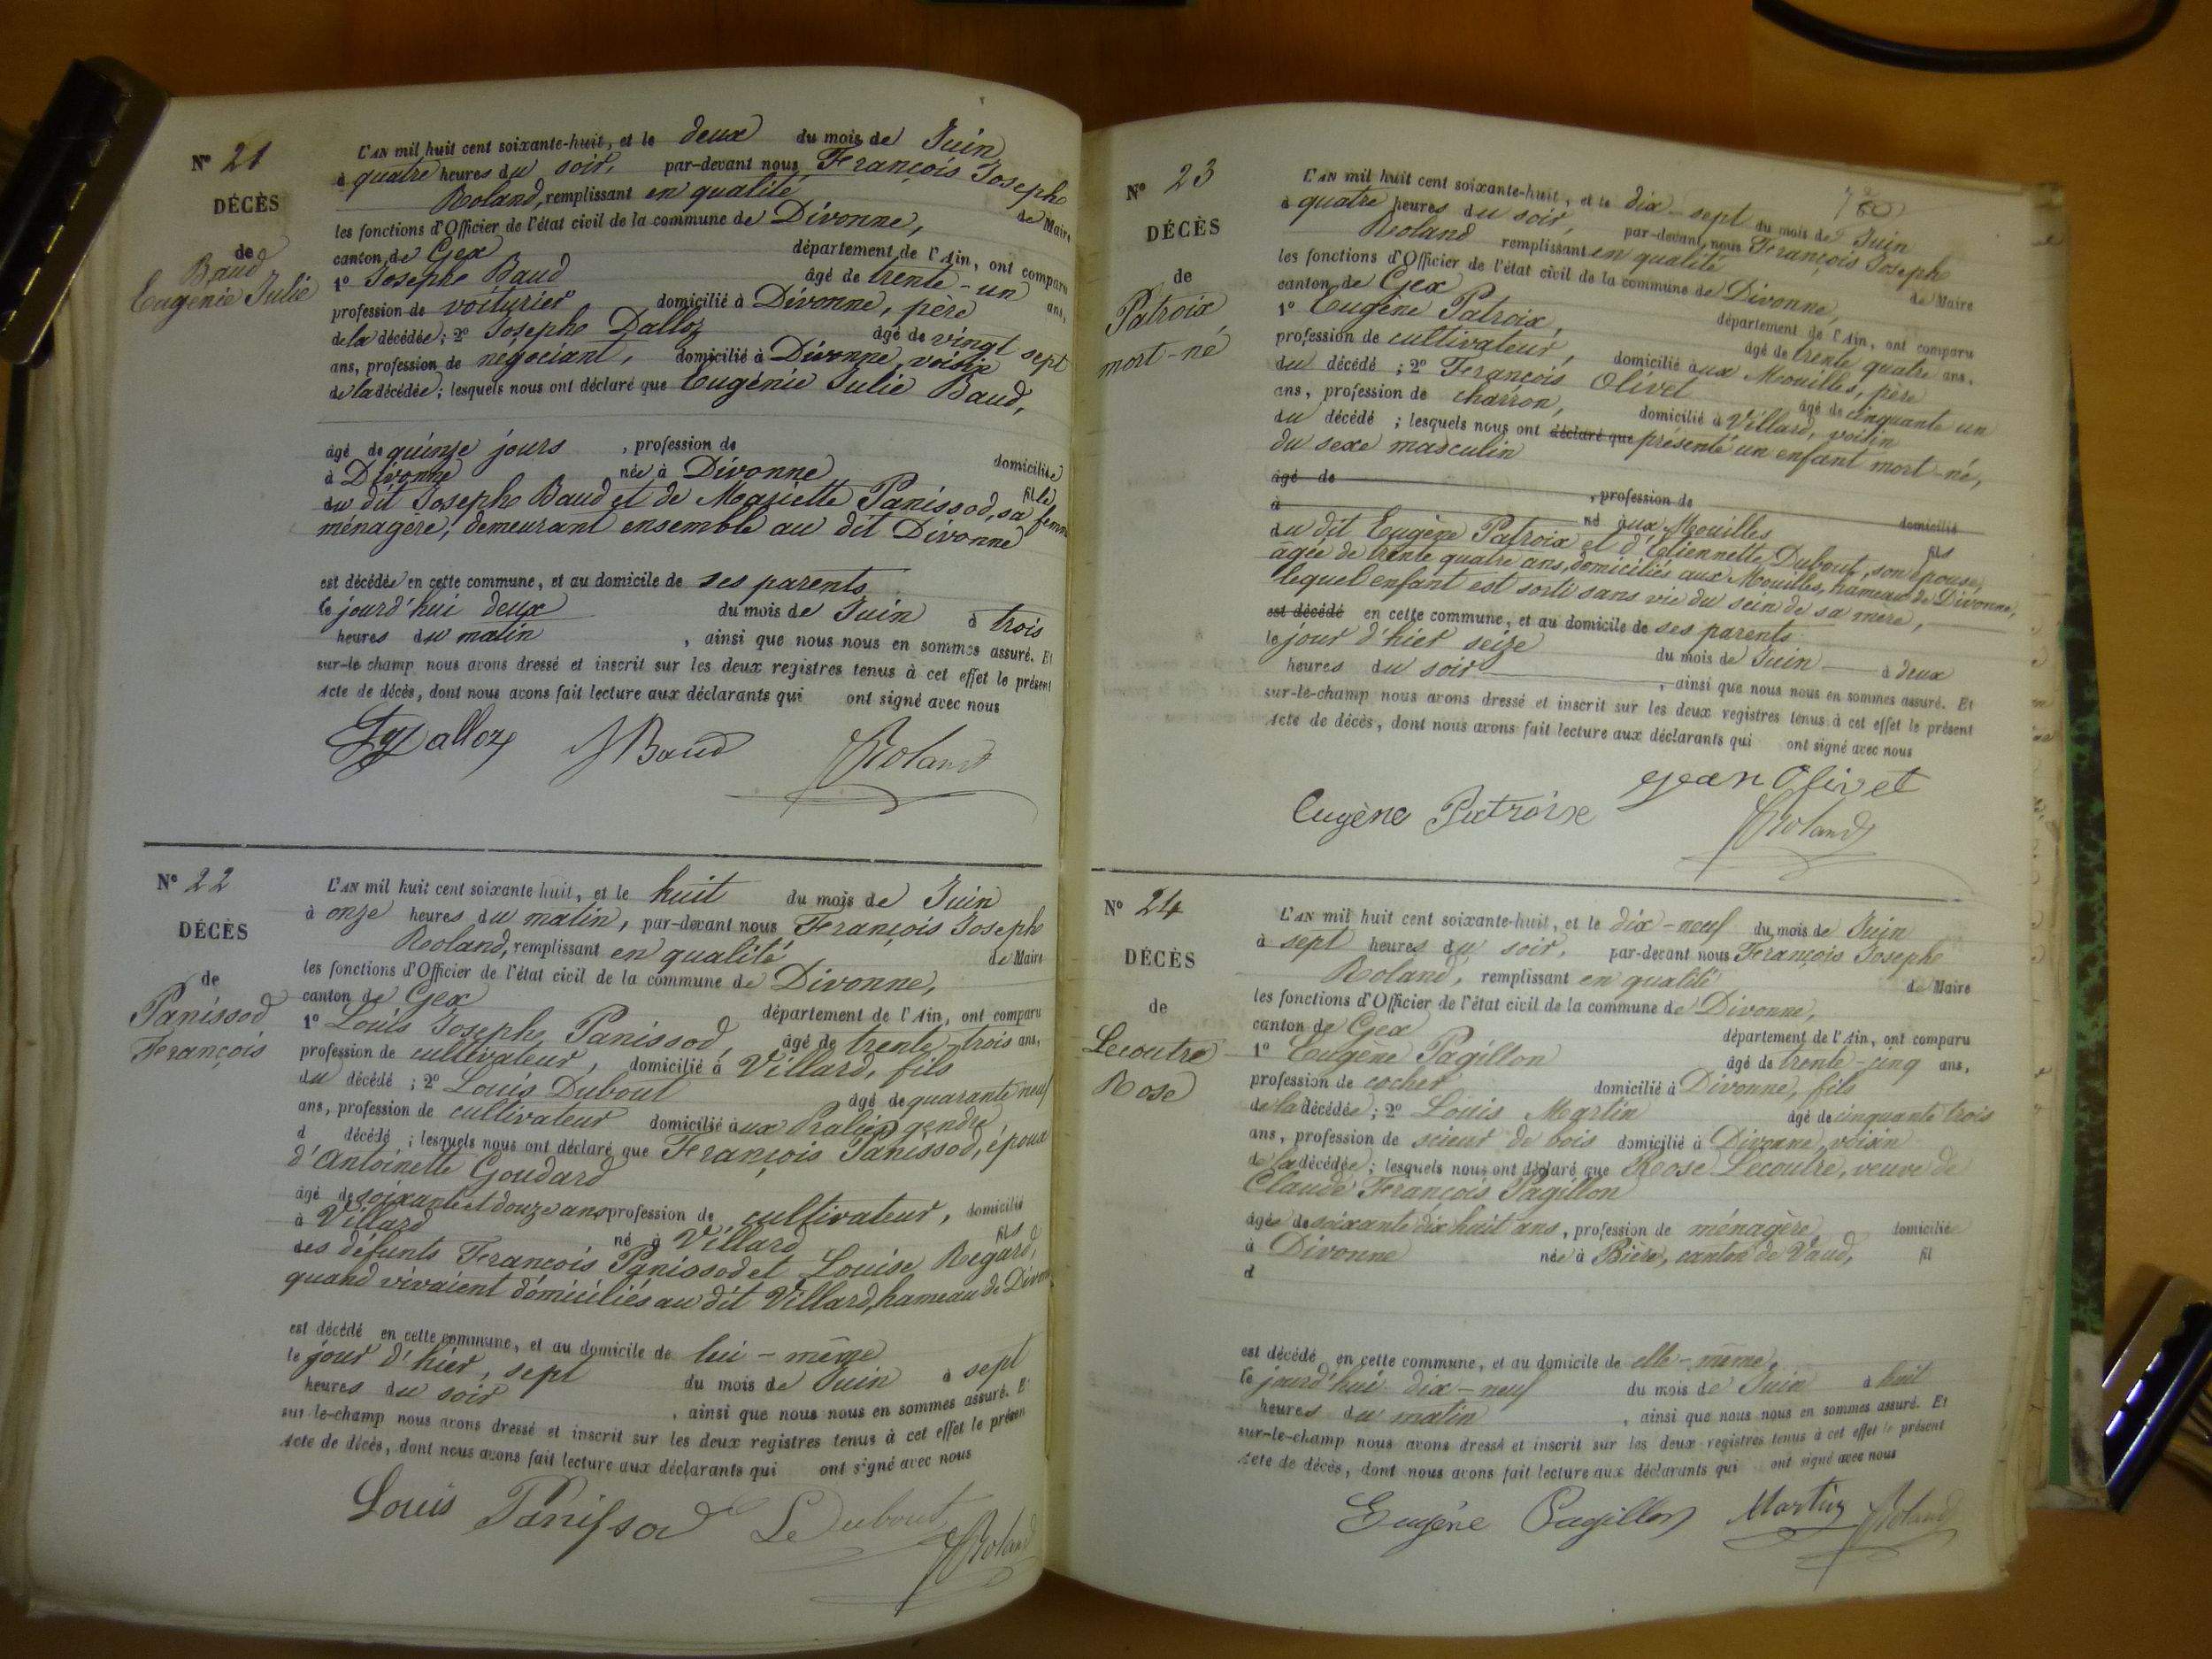 N° 21
DÉCÈS
de
Baud
Eugénie Julie
L'AN mil huit cent soixante-huit, et le deux du mois de Juin
à quatre heures du soir, par-devant nous François Joseph
Roland, remplissant en qualité de Maire
les fonctions d'Officier de l'état civil de la commune de Divonne,
canton de Gex département de l'Ain, ont comparu
1° Joseph Baud âgé de trente-un ans,
profession de voiturier domicilié à Divonne, père
de la décédée; 2° Joseph Dalloz âgé de vingt sept
ans, profession de négociant, domicilié à Divonne, voisin
de la décédée; lesquels nous ont déclaré que Eugénie Julie Baud,
âgé de quinze jours, profession de domiciliée
à Divonne née à Divonne fille
du dit Joseph Baud et de Mariette Panissod, sa femme
ménagère, demeurant ensemble au dit Divonne
est décédée en cette commune, et au domicile de ses parents
le jourd'hui deux du mois de Juin à trois
heures du matin, ainsi que nous nous en sommes assuré. Et
sur-le champ nous avons dressé et inscrit sur les deux registres tenus à cet effet le présent
acte de décès, dont nous avons fait lecture aux déclarants qui ont signé avec nous
Dalloz JBaud Roland
N° 22
DÉCÈS
de
Panissod
François
L'AN mil huit cent soixante huit, et le huit du mois de Juin
à onze heures du matin, par-devant nous François Joseph
Roland, remplissant en qualité de Maire
les fonctions d'Officier de l'état civil de la commune de Divonne,
canton de Gex département de l'Ain, ont comparu
1° Louis Joseph Panissod, âgé de trente-trois ans,
profession de cultivateur, domicilié à Villard, fils
du décédé; 2° Louis Dubout âgé de quarante neuf
ans, profession de cultivateur domicilié aux gendre,
d décédé; lesquels nous ont déclaré que François Panissod, époux
d'Antoinette Goudard
âgé de soixante et douze ans profession de cultivateur, domicilié
à Villard né à Villard fils
des défunts François Panissod et Louise Regard,
quand vivaient domiciliés au dit Villard, hameau de Divonne
est décédé en cette commune, et au domicile de lui-même
le jour d'hier, sept du mois de Juin à sept
heures du soir, ainsi que nous nous en sommes assuré. Et
sur-le-champ nous avons dressé et inscrit sur les deux registres tenus à cet effet le présen
acte de décès, dont nous avons fait lecture aux déclarants qui ont signé avec nous
Louis Panissod Le Dubout Roland
N° 23
DÉCÈS
de
Patroix
mort-né
L'AN mil huit cent soixante-huit, et le dix-sept du mois de Juin
à quatre heures du soir, par-devant nous François Joseph
Roland remplissant en qualité de Maire
les fonctions d'Officier de l'état civil de la commune de Divonne,
canton de Gex département de l'Ain, ont comparu
1° Eugène Patroix, âgé de trente quatre ans,
profession de cultivateur, domicilié aux Mouilles, père
du décédé; 2° François Olivet âgé de cinquante un
ans, profession de charron, domicilié à Villard, voisin
du décédé; lesquels nous ont déclaré que présenté un enfant mort-né,
du sexe masculin
âgé de, profession de domicilié
à né aux Mouilles fils
du dit Eugène Patroix et d'Etiennette Dubout, son épouse,
agée de trente quatre ans, domiciliés aux Mouilles, hameau de Divonne,
lequel enfant est sorti sans vie du sein de sa mère,
est décédé en cette commune, et au domicile de ses parents
le jour d'hier seize du mois de Juin à deux
heures du soir, ainsi que nous nous en sommes assuré. Et
sur-le-champ nous avons dressé et inscrit sur les deux registres tenus à cet effet le présent
acte de décès, dont nous avons fait lecture aux déclarants qui ont signé avec nous
Jean Olivet
Eugène Patroix Roland
N° 24
DÉCÈS
de
Lecoutre
Rose
L'AN mil huit cent soixante-huit, et le dix-neuf du mois de Juin
à sept heures du soir, par-devant nous François Joseph
Roland, remplissant en qualité de Maire
les fonctions d'Officier de l'état civil de la commune de Divonne,
canton de Gex département de l'Ain, ont comparu
1° Eugène Pagillon âgé de trente-cinq ans,
profession de cocher domicilié à Divonne, fils
de la décédée; 2° Louis Martin âgé de cinquante trois
ans, profession de scieur de bois domicilié à Divonne, voisin
de la décédée; lesquels nous ont déclaré que Rose Lecoutre, veuve de
Claude François Pagillon
âgée de soixante dix huit ans, profession de ménagère domiciliée
à Divonne née à Bière, canton de Vaud, fil
d
est décédé en cette commune, et au domicile de elle-même
le jourd'hui dix-neuf du mois de Juin à huit
heures du matin, ainsi que nous nous en sommes assuré. Et
sur-le-champ nous avons dressé et inscrit sur les deux registres tenus à cet effet le présent
acte de décès, dont nous avons fait lecture aux déclarants qui ont signé avec nous
Eugène Pagillon Martin Roland